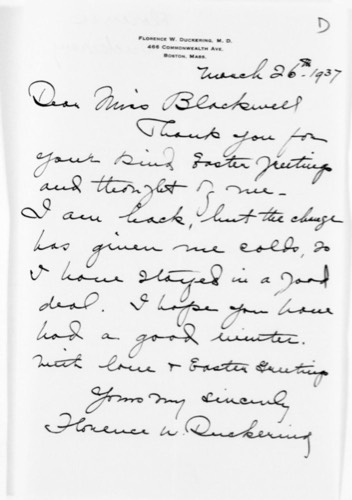 D
FLORENCE W. DUCKERING, M. D.
466 COMMONWEALTH AVE.
BOSTON, MASS.
March 26th - 1937
Dear Miss Blackwell
Thank you for
your kind Easter Greetings
and thought of me -
I am back, but the change
has given me colds, so
I have stayed in a good
deal. I hope you have
had a good winter.
With love & Easter Greetings
Yours very sincerely
Florence W. Duckering